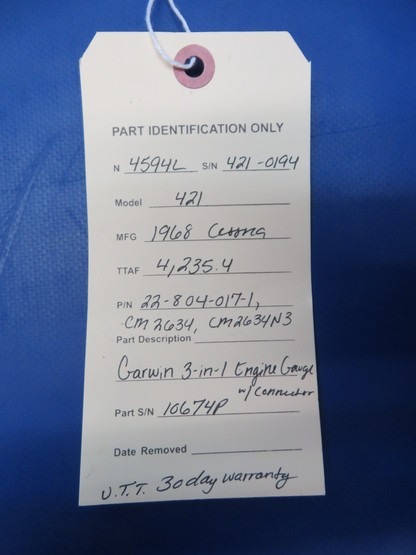 PART IDENTIFICATION ONLY
N 4594L S/N 421-0194
Model 421
MFG 1968 Cessna
TTAF 4,235.4
P/N 22-804-017-1,
CM2634, CM2634N3
Part Description
Garwin 3-in-1 Engine Gauge
w/ Connector
Part S/N 10674P
Date Removed
U.T.T. 30 day warranty